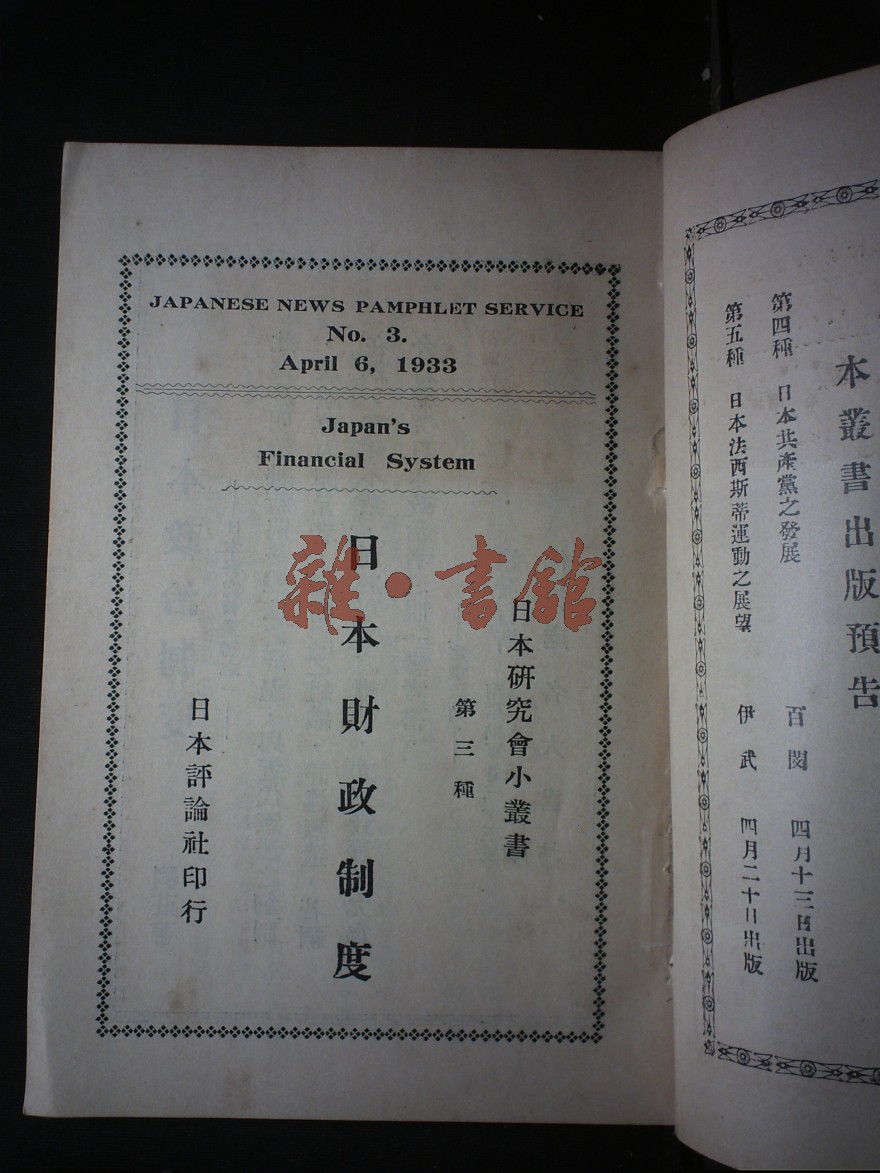 JAPANESE NEWS PAMPHLET SERVICE
No. 3.
April 6, 1933
Japan's
Financial System
日本研究會小叢書
第三種
日本財政制度
日本評論社印行
雜·書館
本叢書出版預告
第四種 日本共產黨之發展 百閔 四月十三日出版
第五種 日本法西斯蒂運動之展望 伊武 四月二十日出版